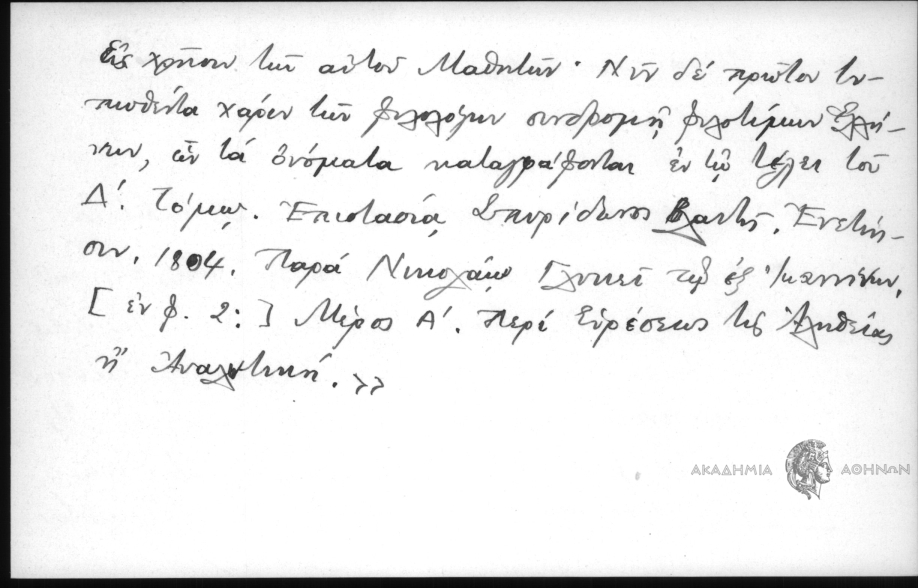 εἰς χρῆσιν τῶν αὑτοῦ Μαθητῶν· Νῦν δέ πρῶτον τυ-
πωθέντα χάριν τῶν φιλολόγων συνδρομῇ φιλοτίμων Ἑλλή-
νων, ὧν τά ὀνόματα καταγράφονται ἐν τῷ τέλει τοῦ
Δ΄. Τόμου. Ἐπιστασίᾳ Σπυρίδωνος Βλαντῆ. Ἐνετίῃ-
σιν. 1804. Παρά Νικολάῳ Γλυκεῖ τῷ ἐξ Ἰωαννίνων.
[ἐν φ. 2:] Μέρος Α΄. Περί Εὑρέσεως τῆς Ἀληθείας
ἤ Ἀναλυτική.>>
ΑΚΑΔΗΜΙΑ ΑΘΗΝΩΝ